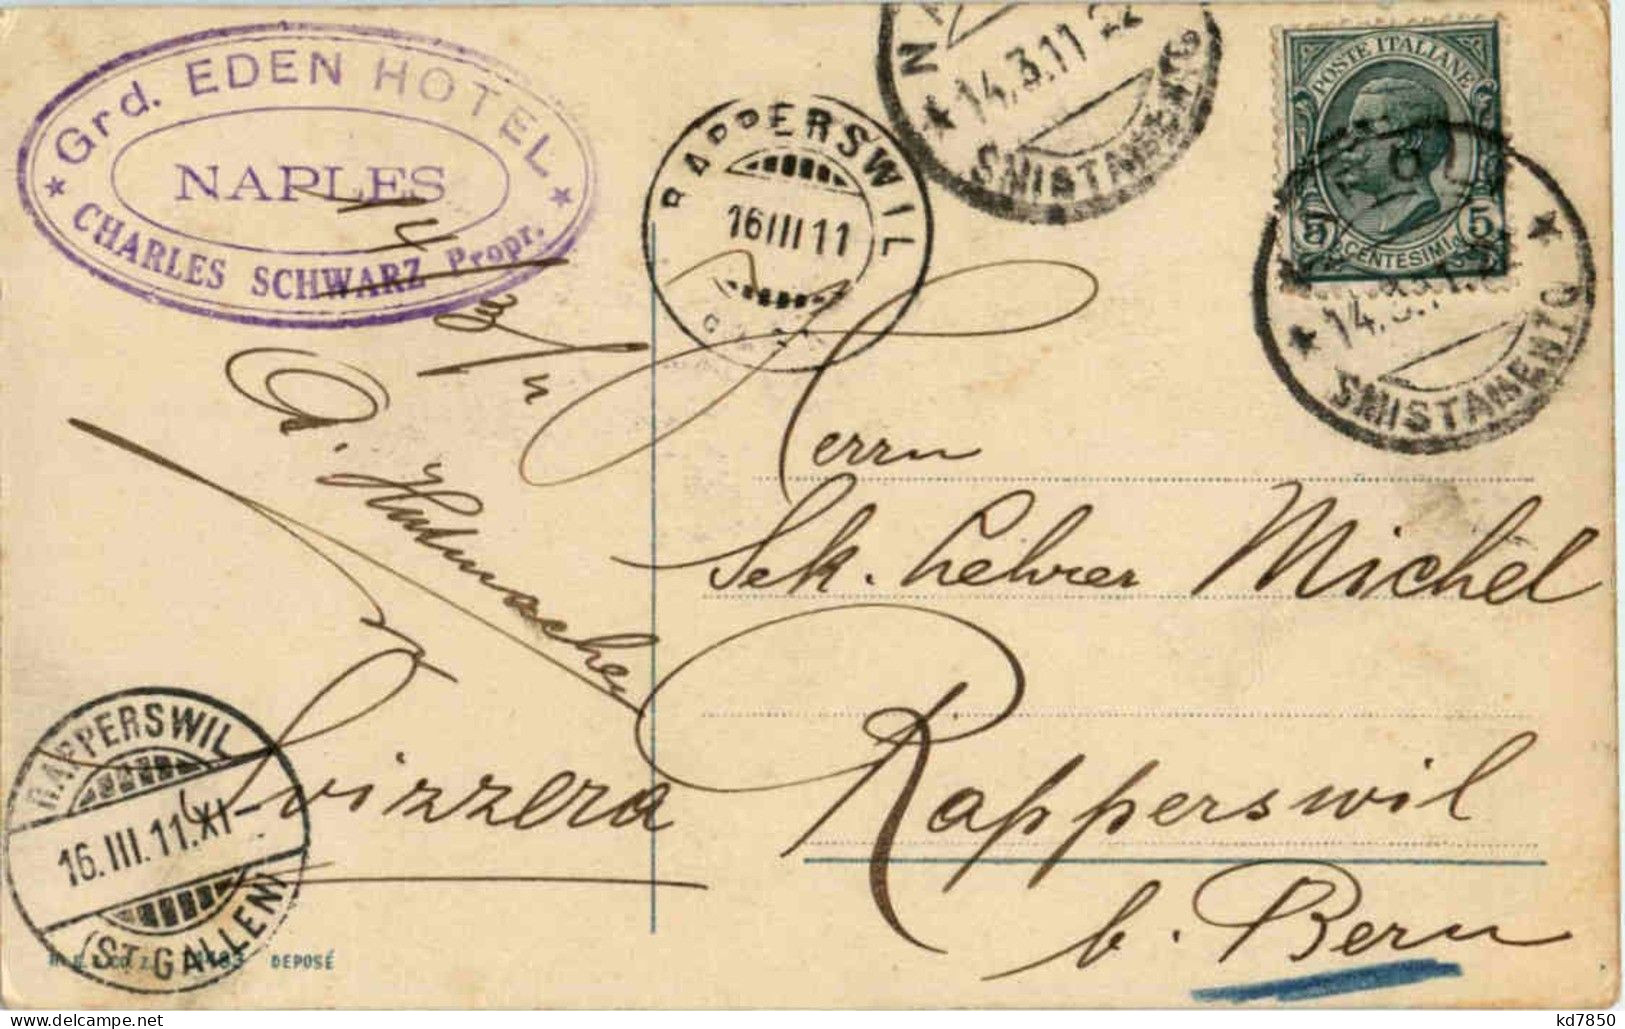 Grd. EDEN HOTEL
NAPLES
CHARLES SCHWARZ Propr.
14/3 11
A. Hutmacher
RAPPERSWIL
16 III 11
14.3.11 22
SMISTAMENTO
POSTE ITALIANE
5 5
CENTESIMI
14.3.
SMISTAMENTO
Herrn
Sek. Lehrer Michel
Rapperswil
b. Bern
Svizzera
RAPPERSWIL
16. III. 11. XI-
(ST. GALLEN)
DEPOSÉ
kd7850